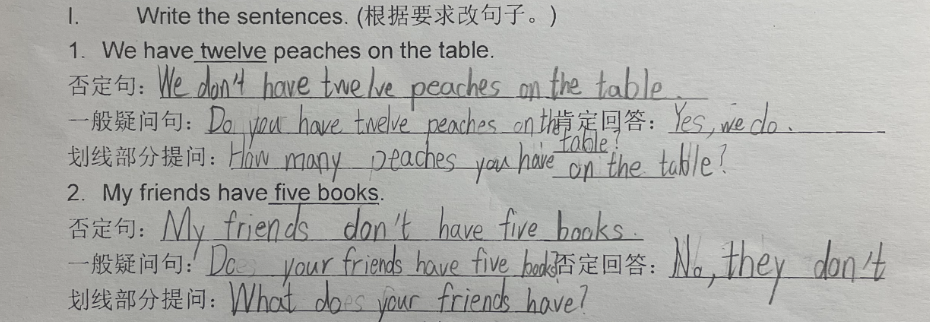 I. Write the sentences. (根据要求改句子。)
1. We have twelve peaches on the table.
否定句: We don't have twelve peaches on the table.
一般疑问句: Do you have twelve peaches on the table? 肯定回答: Yes, we do.
划线部分提问: How many peaches you have on the table?
2. My friends have five books.
否定句: My friends don't have five books.
一般疑问句: Do your friends have five books? 否定回答: No, they don't
划线部分提问: What do your friends have?